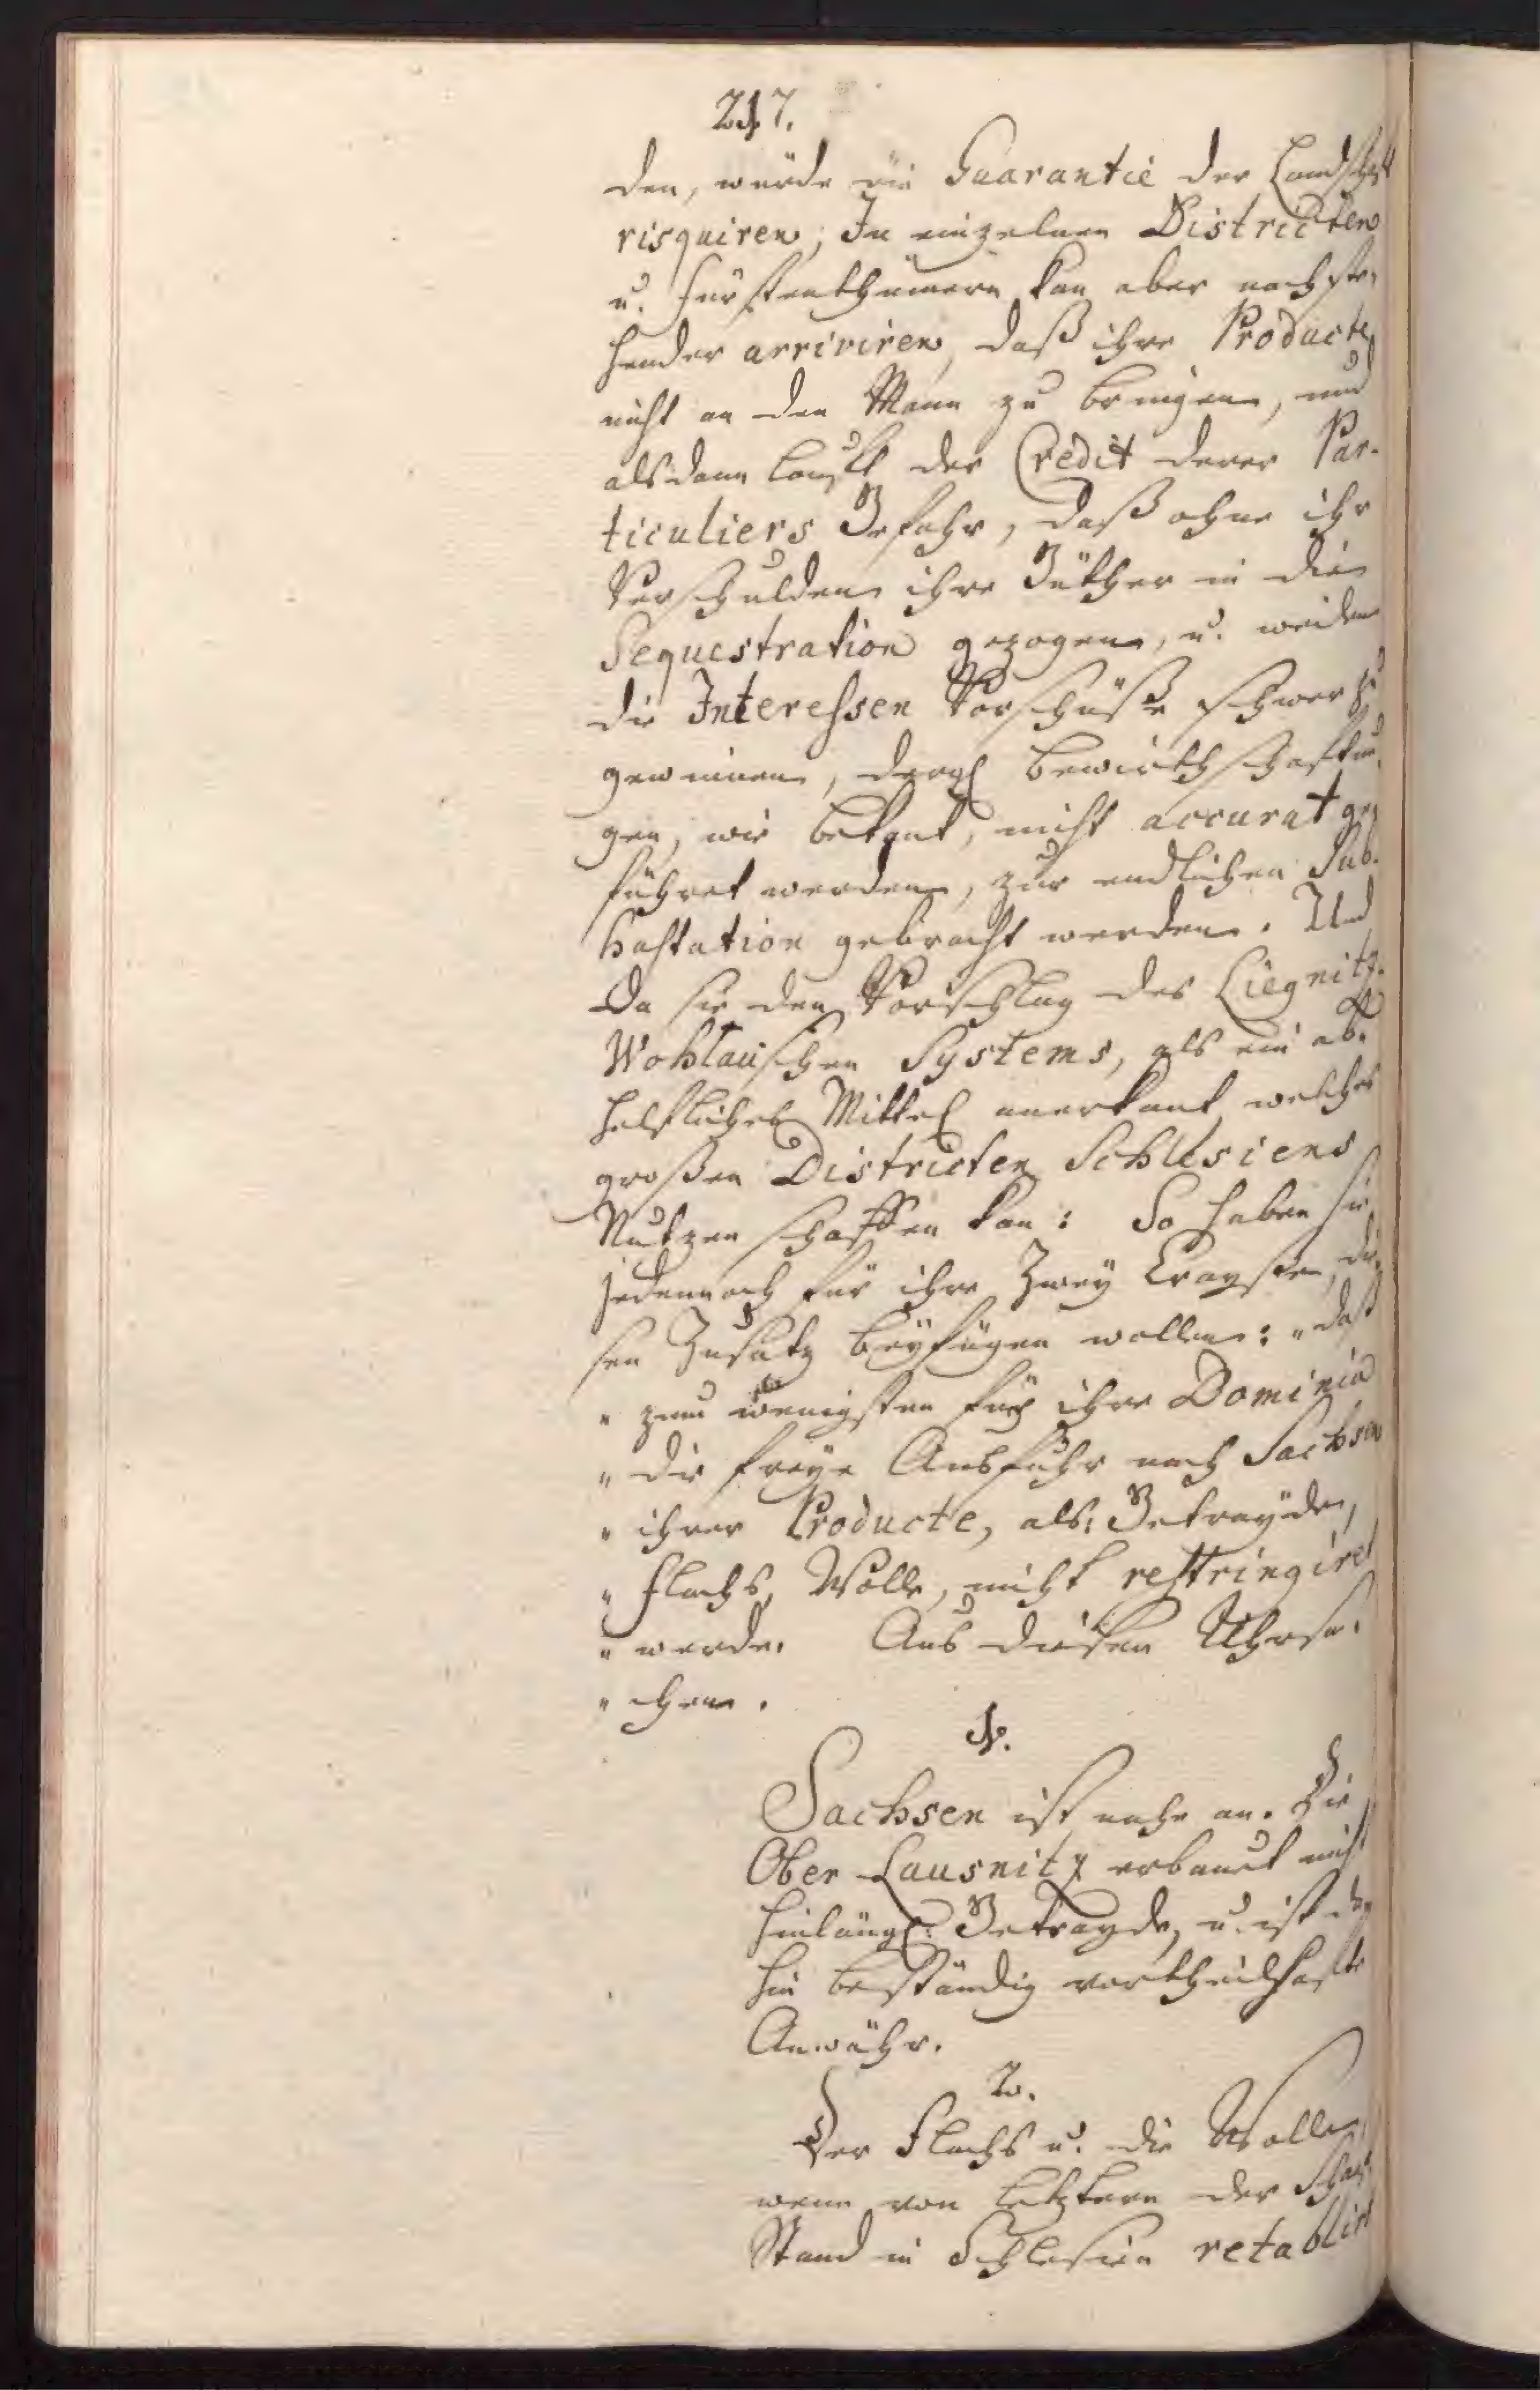 217.
den, würde die Guarantie der Landschafft
risquiren; In einzelnen Districten
u. Fürstenthümern kan aber nachste-
hender arriviren, daß ihre Producte
nicht an den Mann zu bringen, und
alsdann laufft der Credit derer Par-
ticuliers Gefahr, daß ohne ihr
Verschulden ihre Güther in die
Sequestration gezogen, u. werden
die Interessen Vorschüße schwer zu
gewinnen, dergl. Bewirthschafftun-
gen, wie bekant, nicht accurat ge-
führet werden, zur endlichen Sub-
hastation gebracht werden. Und
Da sie den Vorschlag des Liegnitz-
Wohlauschen Systems, als ein ab-
helfliches Mittel anerkant, welches
großen Districten Schlesiens
Nutzen schaffen kan: So haben sie
jedennoch für ihre Zwey Crayße, die-
sen Zusatz beyfügen wollen: „daß
„ zum wenigsten für ihre Dominia
„ die freye Ausfuhr nach Sachsen
„ ihrer Producte, als: Getrayde,
„ Flachs, Wolle, nicht restringiret
„ werde. Aus diesen Uhrsa-
„ chen.
1.
Sachsen ist nahe an. Die
Ober Lausnitz erbauet nicht
hinlängl: Getrayde, u. ist da-
hin beständig vortheilhaffte
Anwähr.
2.
Der Flachs u. die Wolle,
wenn von letztern der Schaaf
Stand in Schlesien retablirt